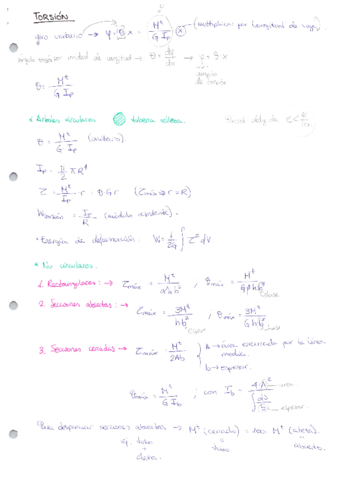 TORSIÓN
giro unitario → φ = θ x = M^t / (G I_p) (x) → (multiplicar por longitud de viga)
ángulo torsión unidad de longitud → θ = dφ/dx → φ = θ·x
θ = M^t / (G I_p)
* Árboles circulares tubería rellena.
θ = M^t / (G·I_p) (unitario)
I_p = π/2 R^4
τ = M^t / I_p · r = θ G r (τmáx → r = R)
W torsión = I_p / R (módulo resistente).
* Energía de deformación: Vi = 1/2G ∫ τ² dV
* No circulares.
1. Rectangulares: → τmáx = M^t / (α h b²) ; θmáx = M^t / (G β h b³)
2. Secciones abiertas: → τmáx = 3M^t / (h b²) ; θmáx = 3M^t / (G h b³)
3. Secciones cerradas → τmáx = M^t / (2Ab) { A → área encerrada por la línea media.
b → espesor.
θmáx = M^t / (G I_t) ; con I_t = 4·A² / ∫ ds/b espesor
Para despreciar secciones abiertas → M^t (cerrada) = 100 M^t (abierta).